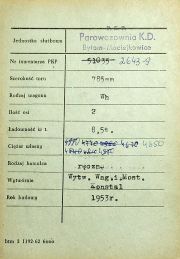 Jednostka służbowa
Parowozownia K.D.
Bytom-
Nr inwentarza PKP 51035 2643-9
Szerokość toru 785mm
Rodzaj wagonu Wh
Ilość osi 2
Ładowność w t. 8,5t.
Ciężar własny 4670 4650
Rodzaj hamulca ręczn.
Wytwórnia Wytw. Wag. i Most.
Konstal
Rok budowy 1953r.